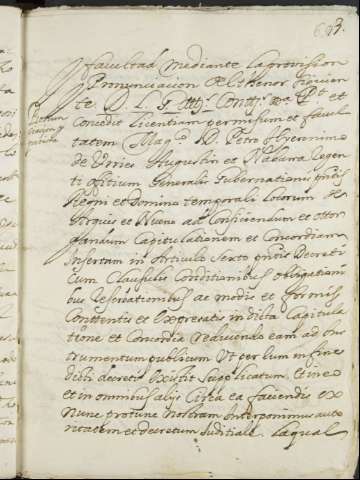 603.
facultad mediante la provission
Pronunciacion del thenor siguien
te D. L. S. Att.
Concedit licentiam permissum et facul
tatem Mag.co D. Petro Hyeronimo
de Urries Augustin et Navarra Regen
ti officium Generalis Gubernationis pntis
Regni et Domino temporali locorum de
et Nueno ad Conficiendum et ottor
gandum Capitulationem et Concordiam
Insertam in Articulo Sexto pntis Decreti
Cum Clausulis Conditionibus obligationi
bus reservationibus ac modis et formis
Contentis et expressatis in dicta Capitula
tione et Concordia reducendo eam ad ins
trumentum publicum Ut per eum in fine
dicti decretis existit supplicatum, Et in eo
et in omnibus alijs Circa ea faciendis ex
Nunc pro tunc nostram Interponimus auto
ritatem et decretum Juditiale. La qual